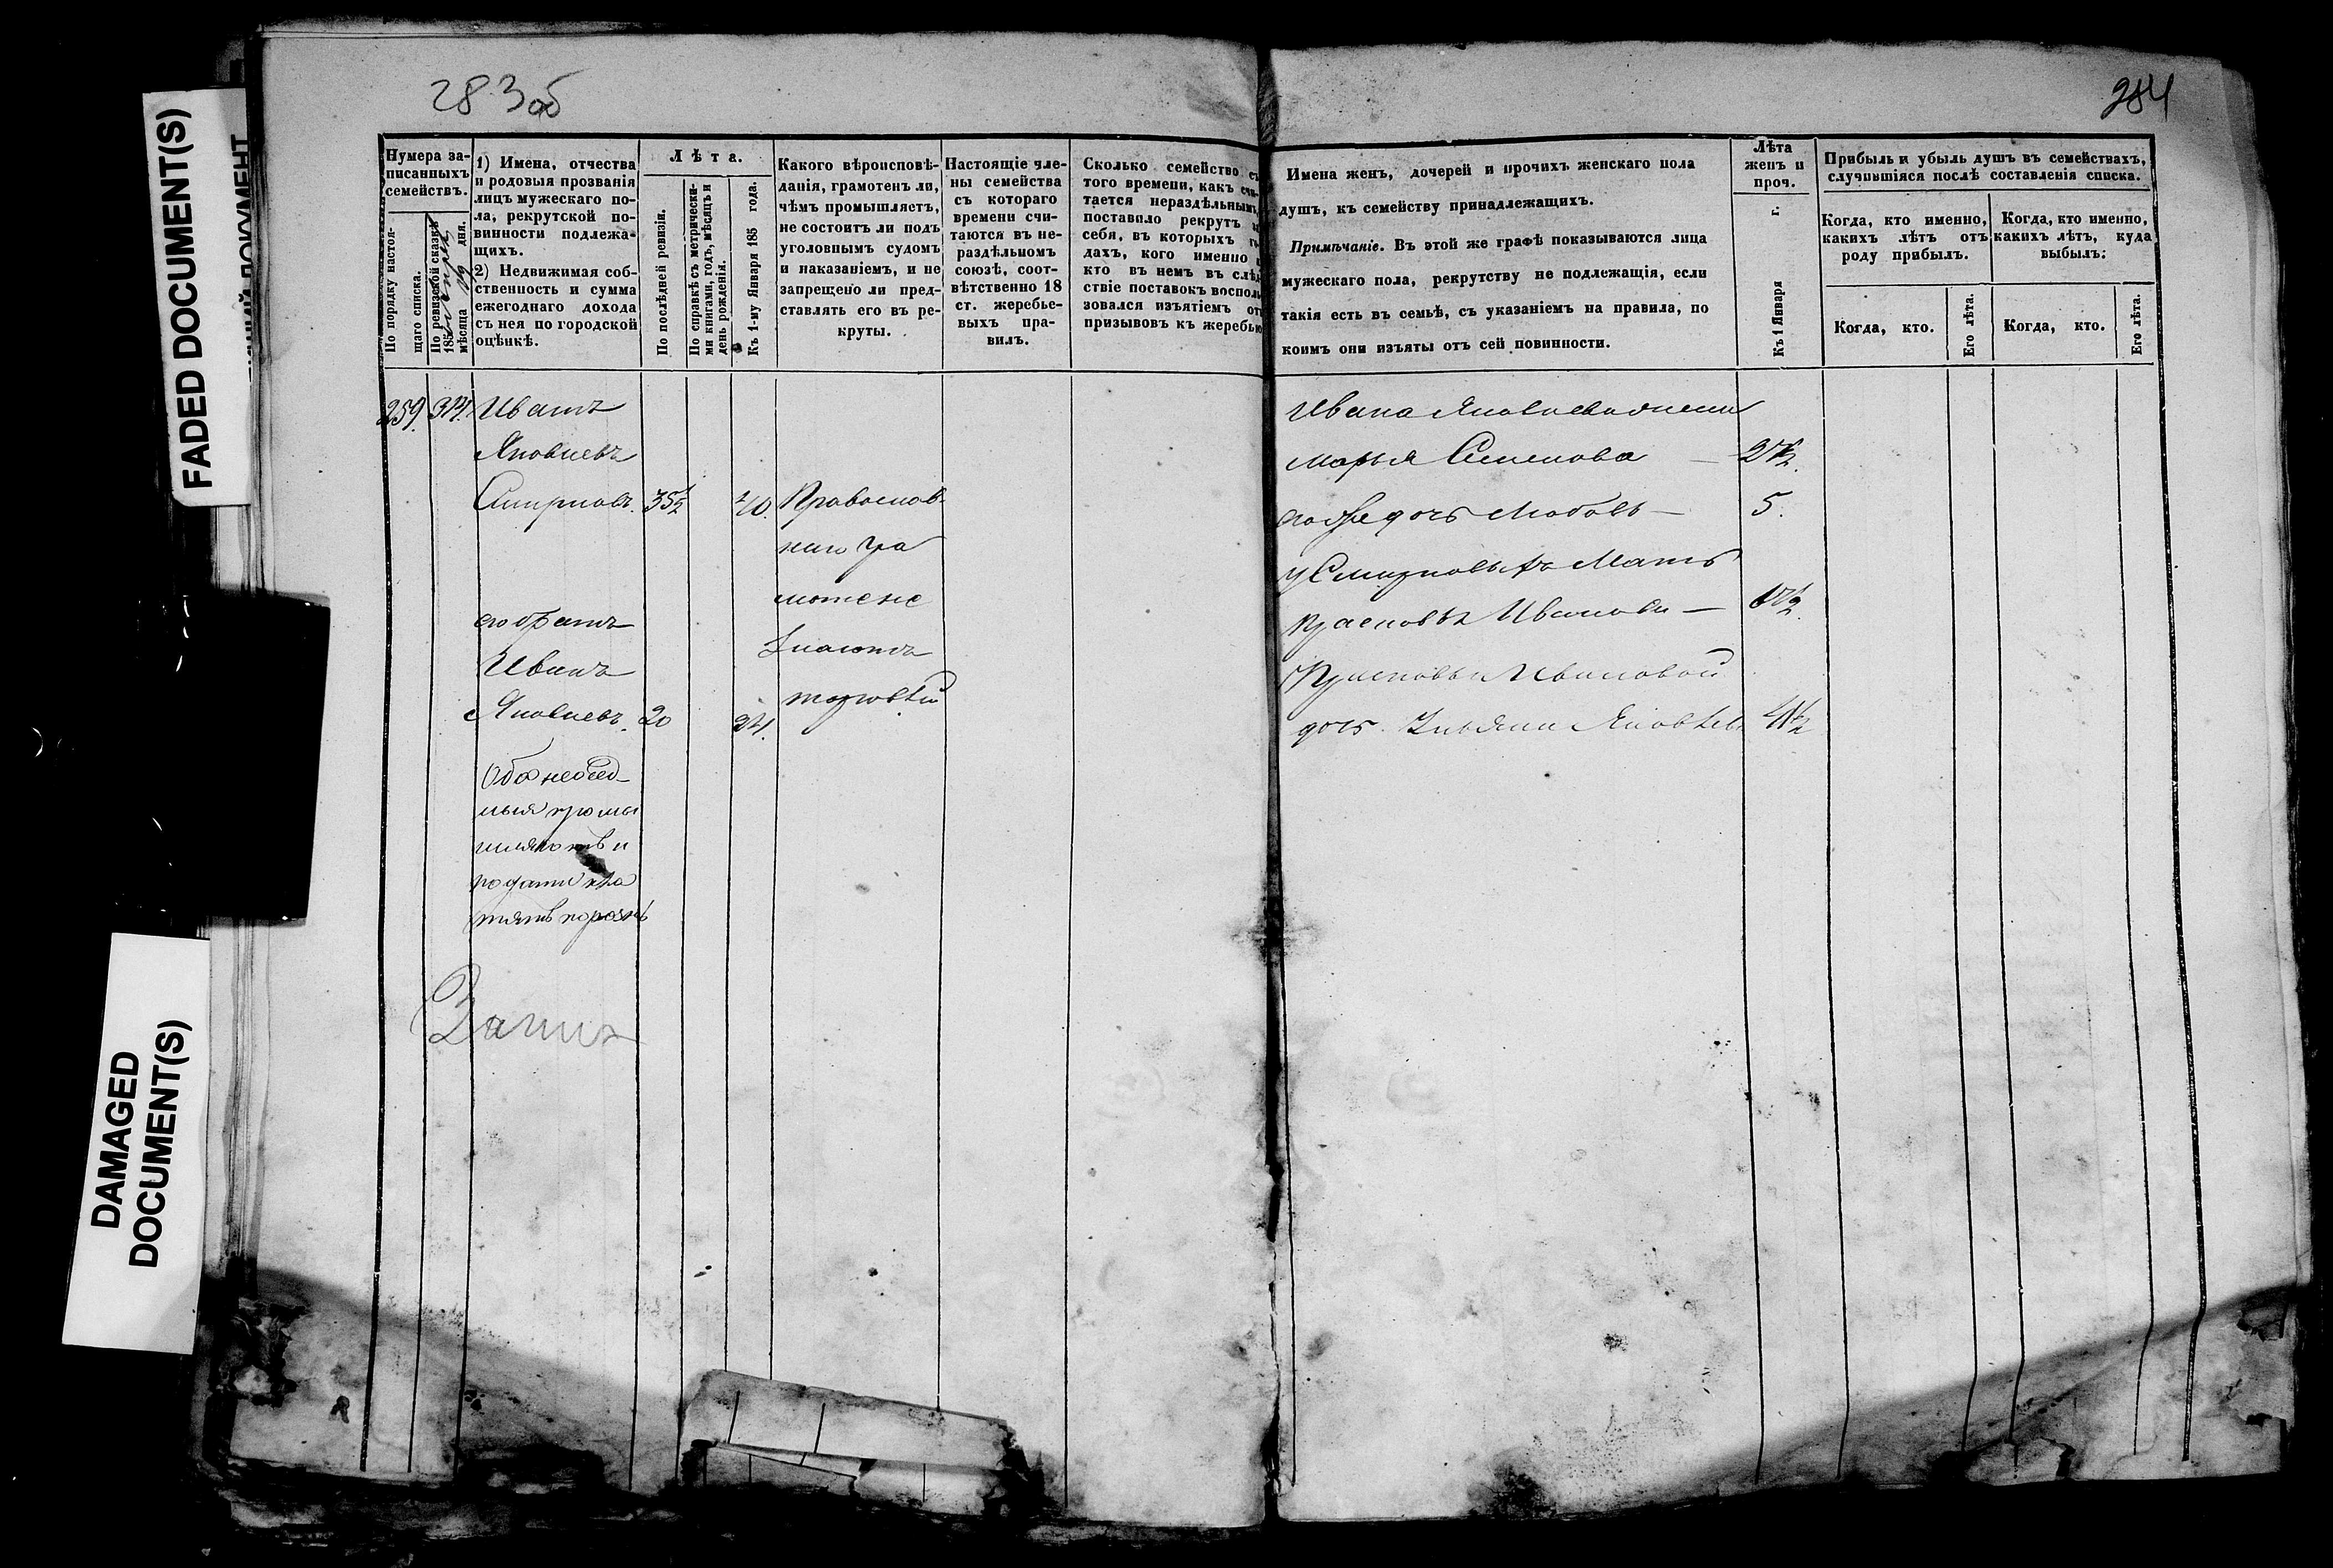 283об
284
FADED DOCUMENT(S)
DAMAGED
DOCUMENT(S)
Нумера за-
писанныхъ
семействъ.
По порядку настоя-
щаго списка.
По ревизской сказкѣ
185
мѣсяца дня.
1) Имена, отчества
и родовыя прозванія
лицъ мужескаго по-
ла, рекрутской по-
винности подлежа-
щихъ.
2) Недвижимая соб-
ственность и сумма
ежегоднаго дохода
съ нея по городской
оцѣнкѣ.
Лѣта.
По послѣдней ревизіи.
По справкѣ съ метрически-
ми книгами, годъ, мѣсяцъ и
день рожденія.
Къ 1-му Января 185 года.
Какого вѣроисповѣ-
данія, грамотенъ ли,
чѣмъ промышляетъ,
не состоитъ ли подъ
уголовнымъ судомъ
и наказаніемъ, и не
запрещено ли пред-
ставлять его въ ре-
круты.
Настоящіе чле-
ны семейства
съ котораго
времени счи-
таются въ не-
раздѣльномъ
союзѣ, соот-
вѣтственно 18
ст. жеребье-
выхъ пра-
вилъ.
Сколько семейство съ
того времени, какъ счи-
тается нераздѣльнымъ,
поставило рекрутъ
себя, въ которыхъ го-
дахъ, кого именно и
кто въ немъ въ слѣд-
ствіе поставокъ восполь-
зовался изъятіемъ отъ
призывовъ къ жеребью
Имена женъ, дочерей и прочихъ женскаго пола
душъ, къ семейству принадлежащихъ.
Примѣчаніе. Въ этой же графѣ показываются лица
мужескаго пола, рекрутству не подлежащія, если
такія есть въ семьѣ, съ указаніемъ на правила, по
коимъ они изъяты отъ сей повинности.
Лѣта
женъ и
проч.
Къ 1 Января г.
Прибыль и убыль душъ въ семействахъ,
случившіяся послѣ составленія списка.
Когда, кто именно,
какихъ лѣтъ отъ
роду прибылъ.
Когда, кто именно,
какихъ лѣтъ, куда
выбылъ:
Когда, кто.
Его лѣта.
Когда, кто.
Его лѣта.
259. Иванъ
Яковлевъ
Смирновъ. 35½ 40. Православ-
наго гра
мотене
знаютъ
торговлѣй
его братъ
Иванъ
Яковлевъ. 20 24.
Оба небѣд-
ныя промы
шляютъ и
подати пла
тятъ порознь
Ивана Яковлева жена
Марья Семенова — 27½.
его же дочь Любовь — 5.
у Смирновыхъ Мать
Прасковья Иванова —
Прасковьи Ивановой
дочь Ульяна Яковлева